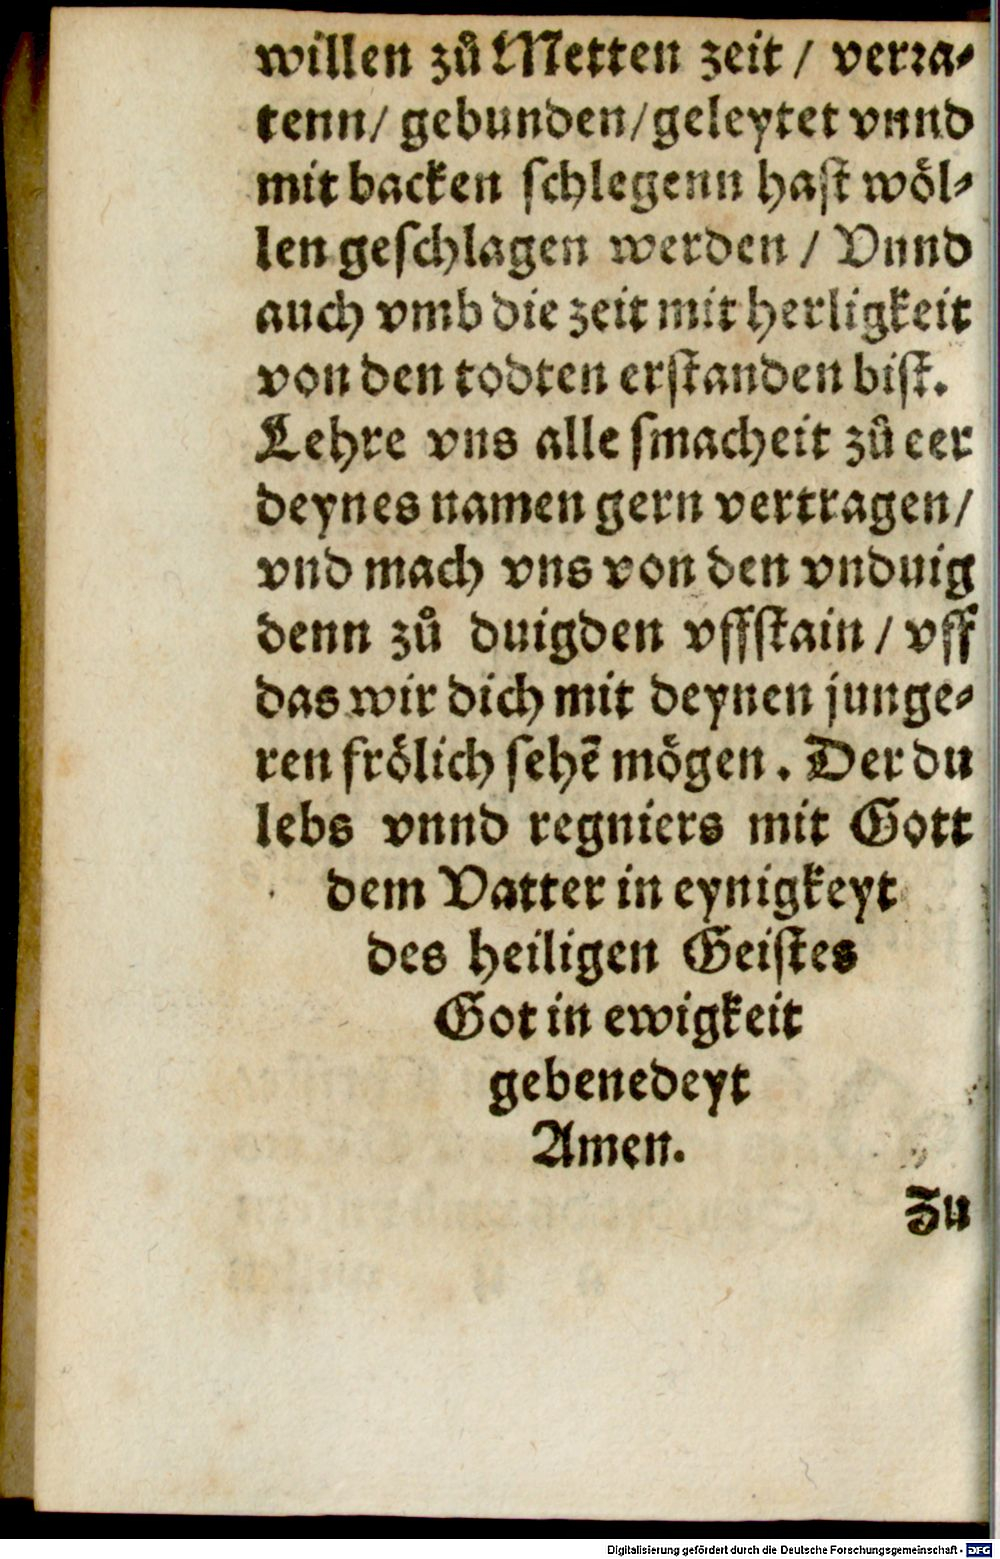 willen zů Metten zeit / verꝛa⸗
tenn/ gebunden/geleytet vnnd
mit backen ſchlegenn haſt wöl⸗
len geſchlagen werden / Vnnd
auch vmb die zeit mit herligkeit
von den todten erſtanden biſt.
Lehre vns alle ſmacheit zů eer
deynes namen gern vertragen/
vnd mach vns von den vnduig
denn zů duigden vffſtain / vff
das wir dich mit deynen junge⸗
ren frölich ſehẽ mögen. Der du
lebs vnnd regniers mit Gott
dem Vatter in eynigkeyt
des heiligen Geiſtes
Got in ewigkeit
gebenedeyt
Amen.
Zu
Digitalisierung gefördert durch die Deutsche Forschungsgemeinschaft - DFG